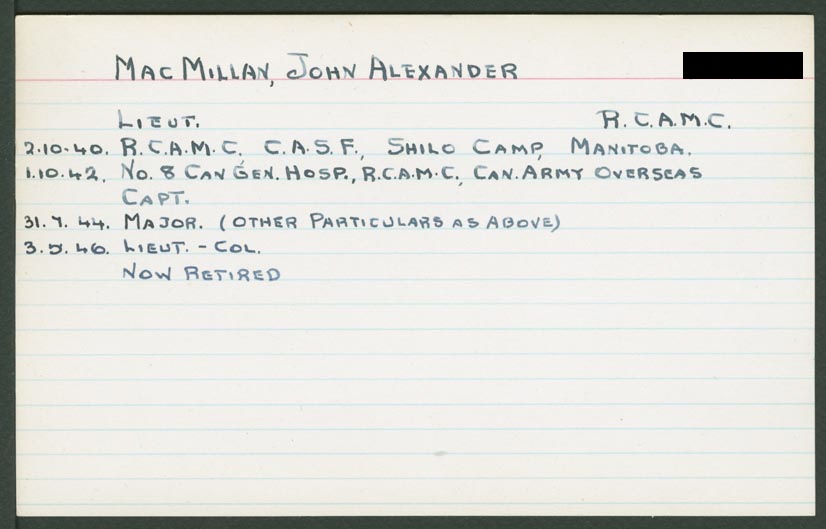 MacMillan, John Alexander
Lieut. R.C.A.M.C.
2.10.40. R.C.A.M.C. C.A.S.F., Shilo Camp, Manitoba.
1.10.42. No. 8 Can Gen. Hosp., R.C.A.M.C., Can. Army Overseas
Capt.
31.7.44. Major. (Other Particulars as Above)
3.5.46. Lieut. - Col.
Now Retired